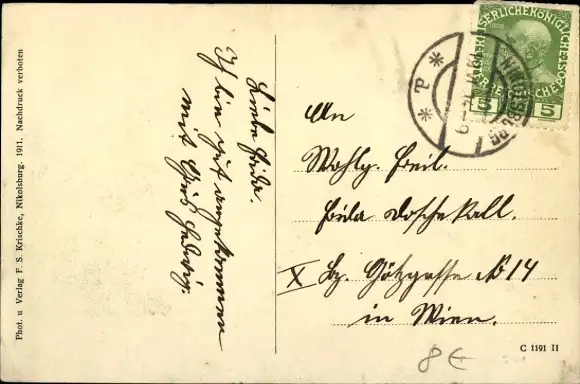 Liebe Frida.
Ich bin gut angekommen
mit Gruß Hedwig.
An
Wohlg. Frl.
Frida Doschekall.
X Bz. Götzgasse No 14
in Wien.
KAISERLICHE KÖNIGLICHE
1908
5 5
Phot. u Verlag F. S. Krischke, Nikolsburg. 1911. Nachdruck verboten
C 1191 II
8€